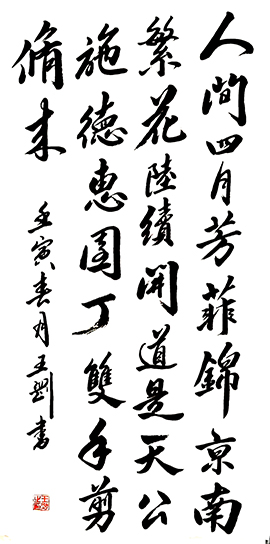 人間四月芳菲錦京南
繁花陸續開道是天公
施德惠園丁雙手剪
脩来
壬寅春月王剛書